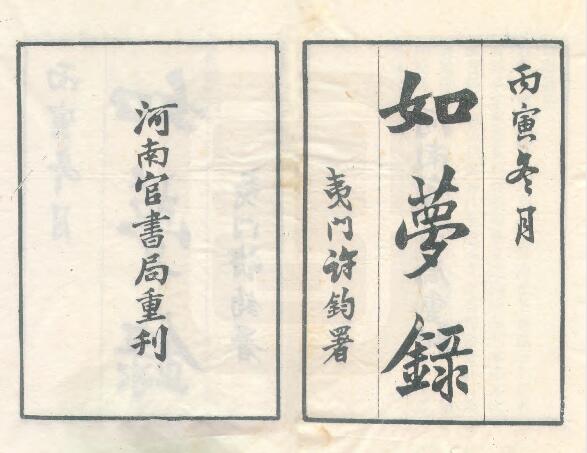 丙寅冬月
如夢錄
夷门許鈞署
河南官書局重刊